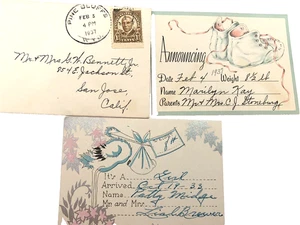 PINE BLUFFS
FEB 5
6 PM
1937
WYO.
Mr & Mrs G. W. Bennett, Jr.
Jackson St.
San Jose,
Calif.
Announcing
Date Feb 4 1937 Weight 8½ lb
Name Marilyn Kay
Parents Mr & Mrs C. J. Stoneburg
It's A Girl
Arrived Oct 19 - 33
Name Patsy Midge
Mr. and Mrs.
Brewer